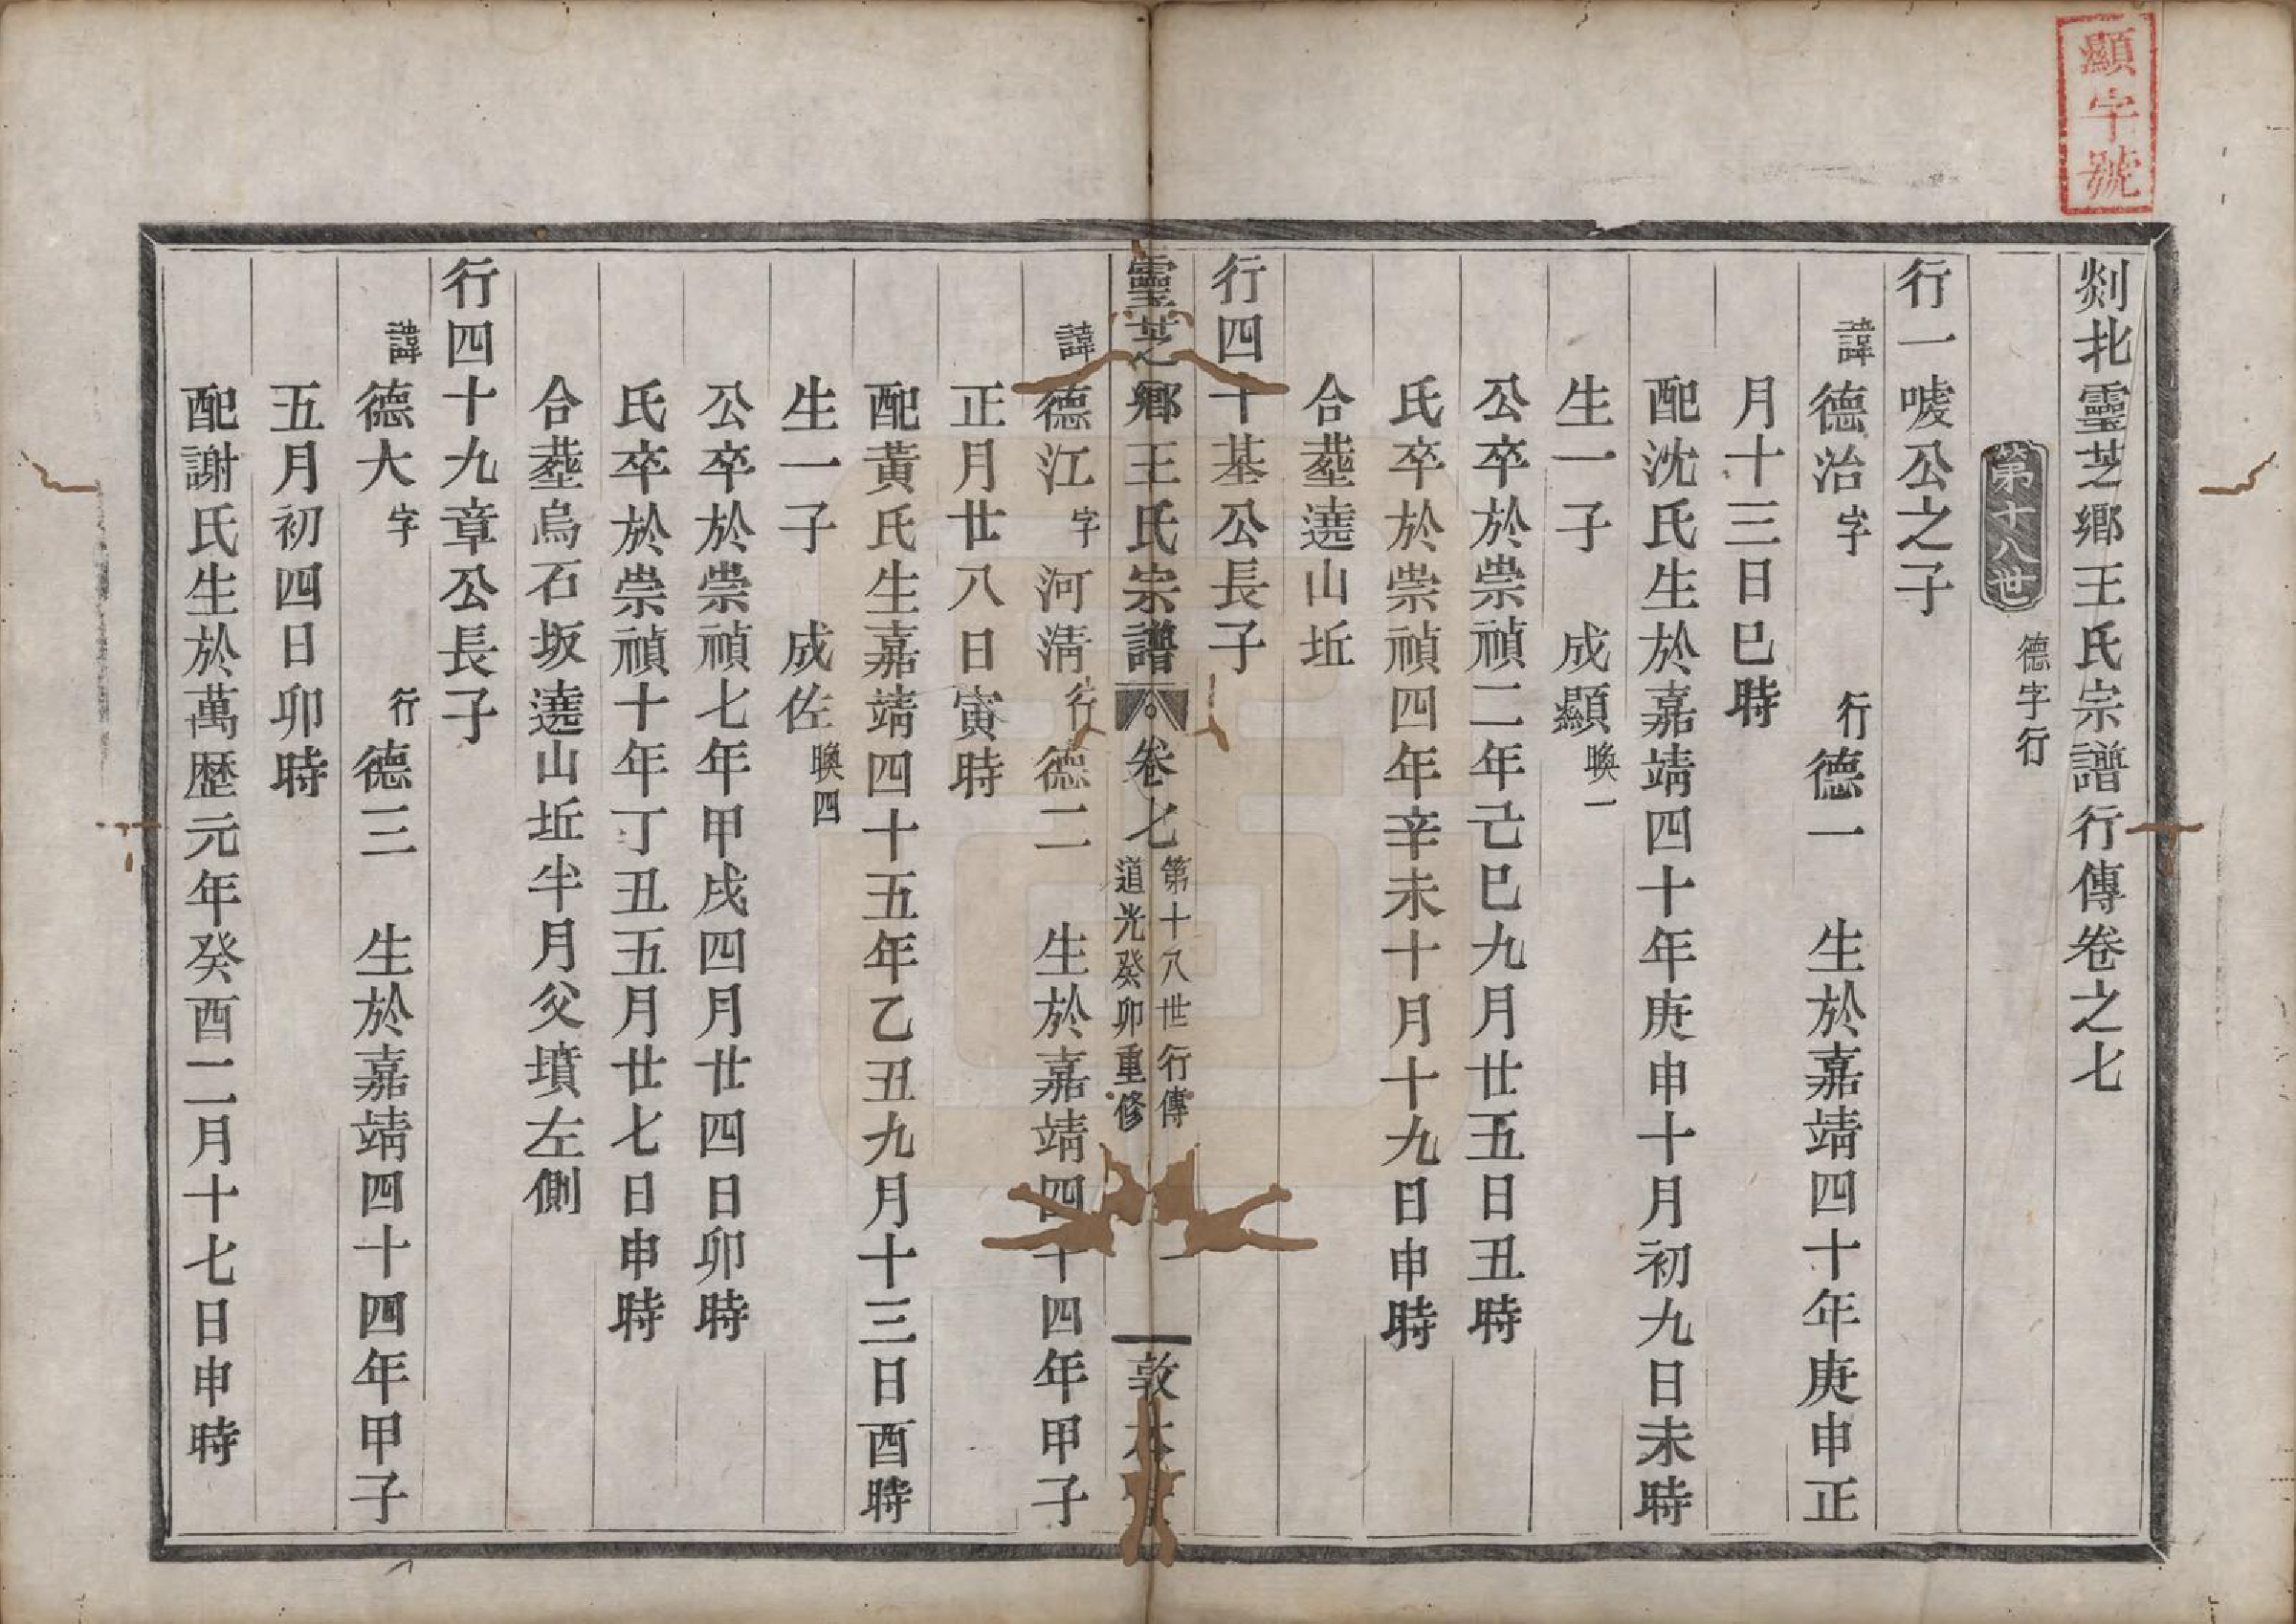 顯字號
剡北靈芝鄉王氏宗譜行傳卷之七
第十八世
德字行
行一唛公之子
諱德治字 行德一 生於嘉靖四十年庚申正
月十三日巳時
配沈氏生於嘉靖四十年庚申十月初九日未時
生一子 成顯㬇一
公卒於崇禎二年己巳九月廿五日丑時
氏卒於崇禎四年辛未十月十九日申時
合塟遶山坵
行四十基公長子
靈芝鄉王氏宗譜 卷七 第十八世行傳 道光癸卯重修 一 敦本
諱德江字河淸行德二 生於嘉靖四十四年甲子
正月廿八日寅時
配黃氏生嘉靖四十五年乙丑九月十三日酉時
生一子 成佐㬇四
公卒於崇禎七年甲戌四月廿四日卯時
氏卒於崇禎十年丁丑五月廿七日申時
合塟烏石坂遶山坵半月父墳左側
行四十九章公長子
諱德大字 行德三 生於嘉靖四十四年甲子
五月初四日卯時
配謝氏生於萬歴元年癸酉二月十七日申時